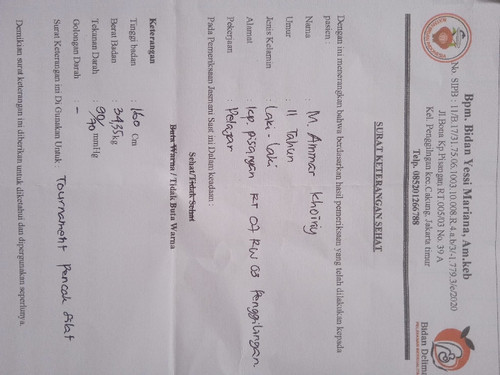 Bpm. Bidan Yessi Mariana, Am.keb
No. SIPB : 11/B.17/31.75.06.1003.10.008.R.4.a.b/3/-1.779.3/e/2020
Jl.Bona Kp.Pisangan RT.005/03 No. 39 A
Kel. Penggilingan kec.Cakung, Jakarta timur
Telp. 085201266788
Bidan Delima
SURAT KETERANGAN SEHAT
Dengan ini menerangkan bahwa berdasarkan hasil pemeriksaan yang telah dilakukan kepada
pasien
Nama : M Ammar Khoiriy
Umur : 11 Tahun
Jenis Kelamin : Laki-Laki
Alamat : Kp. pisangan RT 07 RW 03 Penggilingan
Pekerjaan : Pelajar
Pada Pemeriksaan Jasmani Saat ini Dalam keadaan :
Sehat/Tidak Sehat
Buta Warna / Tidak Buta Warna
Keterangan
Tinggi badan : 160 Cm
Berat Badan : 34,35 kg
Tekanan Darah : 90/70 mmHg
Golongan Darah : -
Surat Keterangan ini Di Gunakan Untuk : Tournament Pencak Silat
Demikian surat keterangan ini diberikan untuk diketahui dan dipergunakan seperlunya.